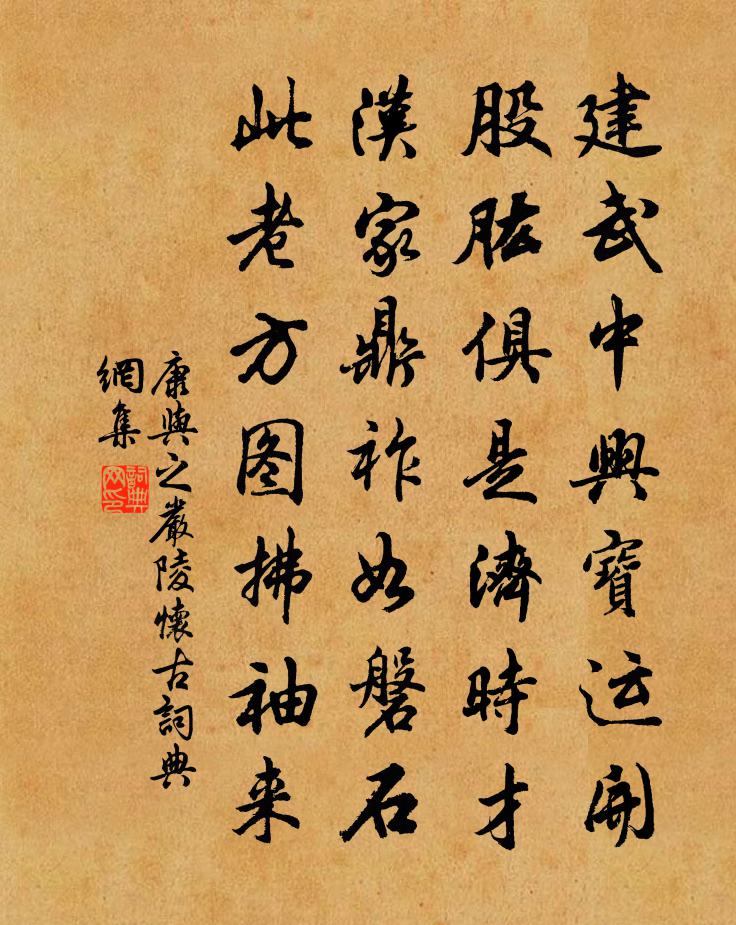 建武中興寶运開
股肱俱是濟時才
漢家鼎祚如磐石
此老方图拂袖来
康與之嚴陵懷古詞典
網集
詞典
网印